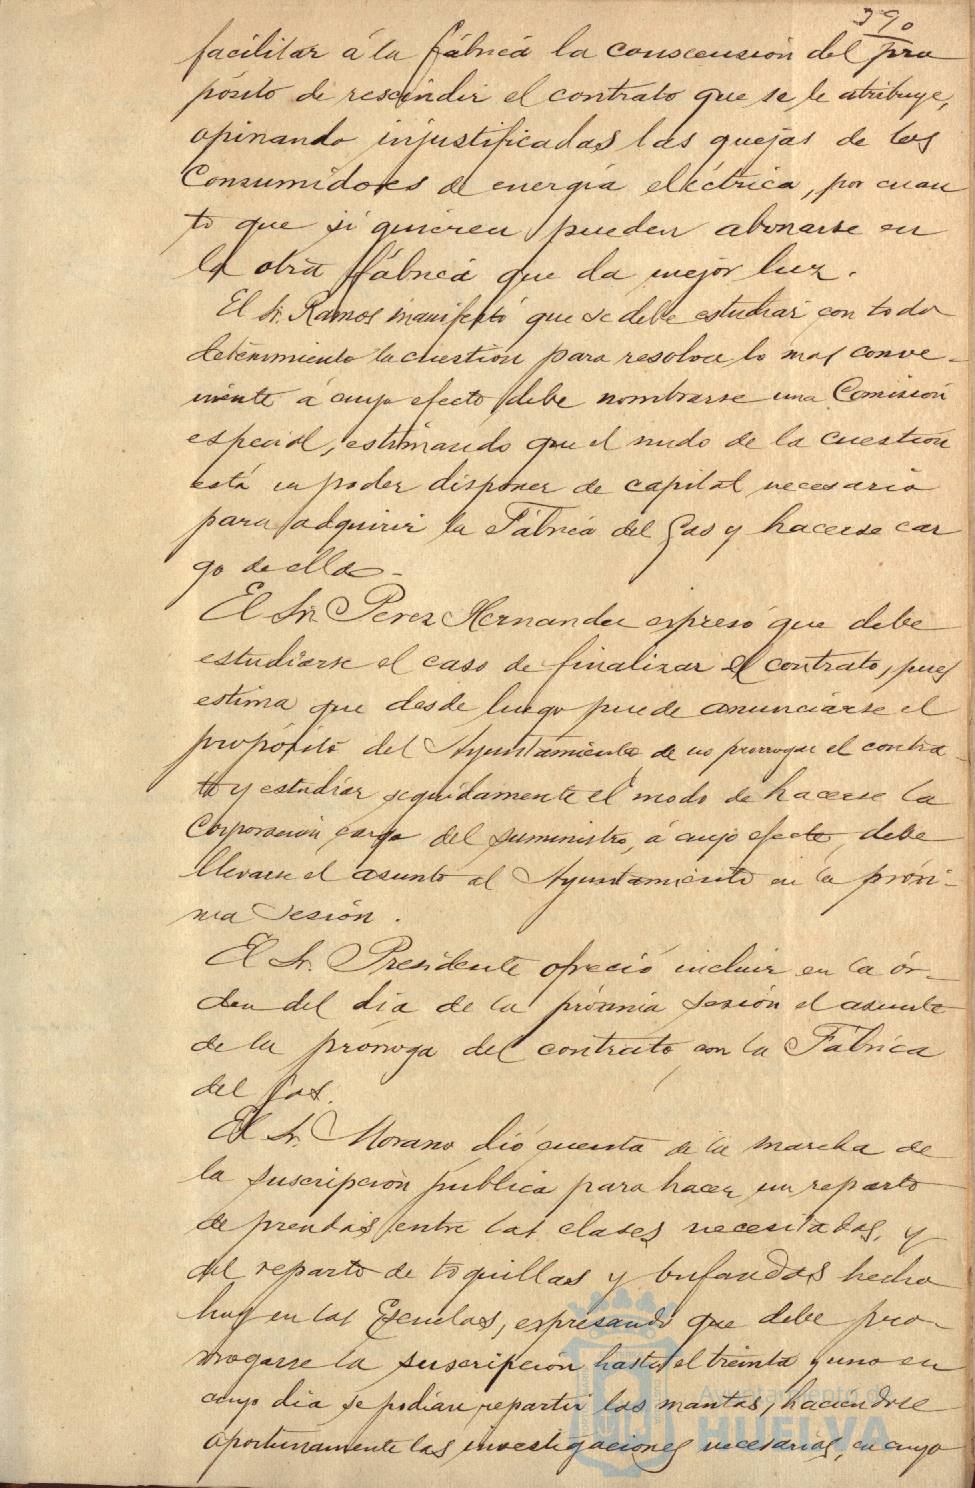 390
facilitar á la fábrica la conscensión del pro
pósito de rescindir el contrato que se le atribuye,
opinando injustificadas las quejas de los
Consumidores de energía eléctrica, por cuan
to que si quieren pueden abonarse en
la otra fábrica que da mejor luz.
El Sr. Ramos manifestó que se debe estudiar con todo
detenimiento la cuestión para resolver lo mas conve-
niente á cuyo efecto debe nombrarse una Comisión
especial, estimando que el nudo de la cuestión
está en poder disponer de capital necesario
para adquirir la Fábrica del Gas y hacerse car
go de ella.
El Sr. Perez Hernandez espresó que debe
estudiarse el caso de finalizar el contrato, pues
estima que desde luego puede anunciarse el
propósito del Ayuntamiento de no prorrogar el contra-
to y estudiar seguidamente el modo de hacerse la
Corporación cargo del suministro, á cuyo efecto debe
llevarse el asunto al Ayuntamiento en la próxi-
ma sesión.
El Sr. Presidente ofreció incluir en la ór-
den del día de la próxima sesión el asunto
de la prórroga del contrato con la Fábrica
del Gas.
El Sr. Morano dió cuenta de la marcha de
la suscripción pública para hacer un reparto
de prendas entre las clases necesitadas, y
del reparto de toquillas y bufandas hecho
hoy en las Escuelas, espresando que debe pro-
rrogarse la suscripción hasta el treinta y uno en
cuyo dia se podian repartir las mantas, haciendose
oportunamente las investigaciones necesarias, en cuyo
Ayuntamiento de
HUELVA